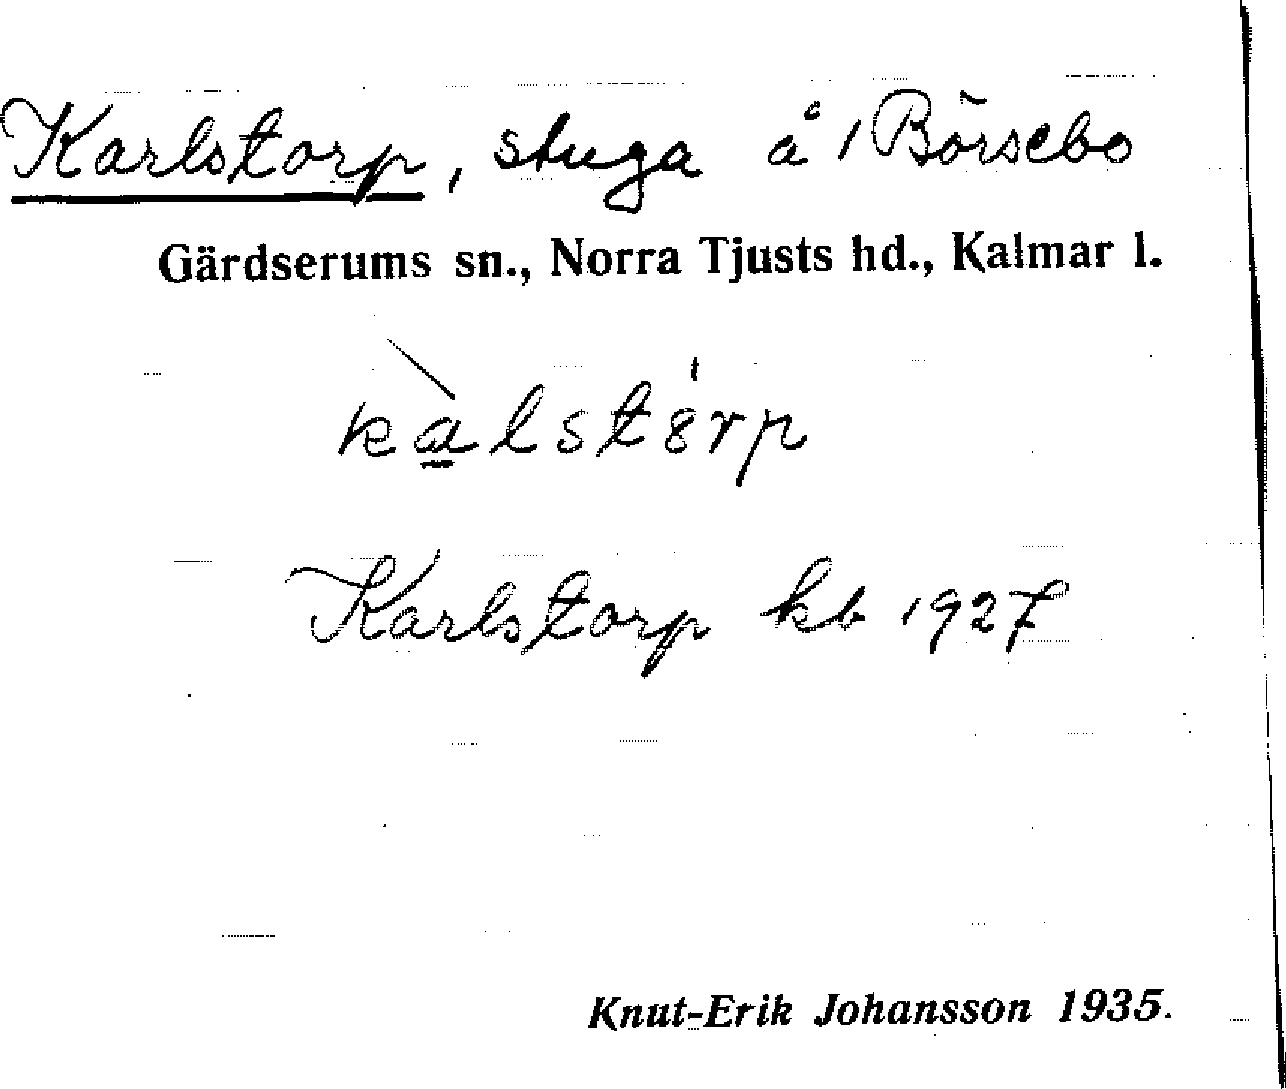 Karlstorp, stuga å 1 Börsebo
Gärdserums sn., Norra Tjusts hd., Kalmar l.
kàlstérp
Karlstorp kb 1927
Knut-Erik Johansson 1935.